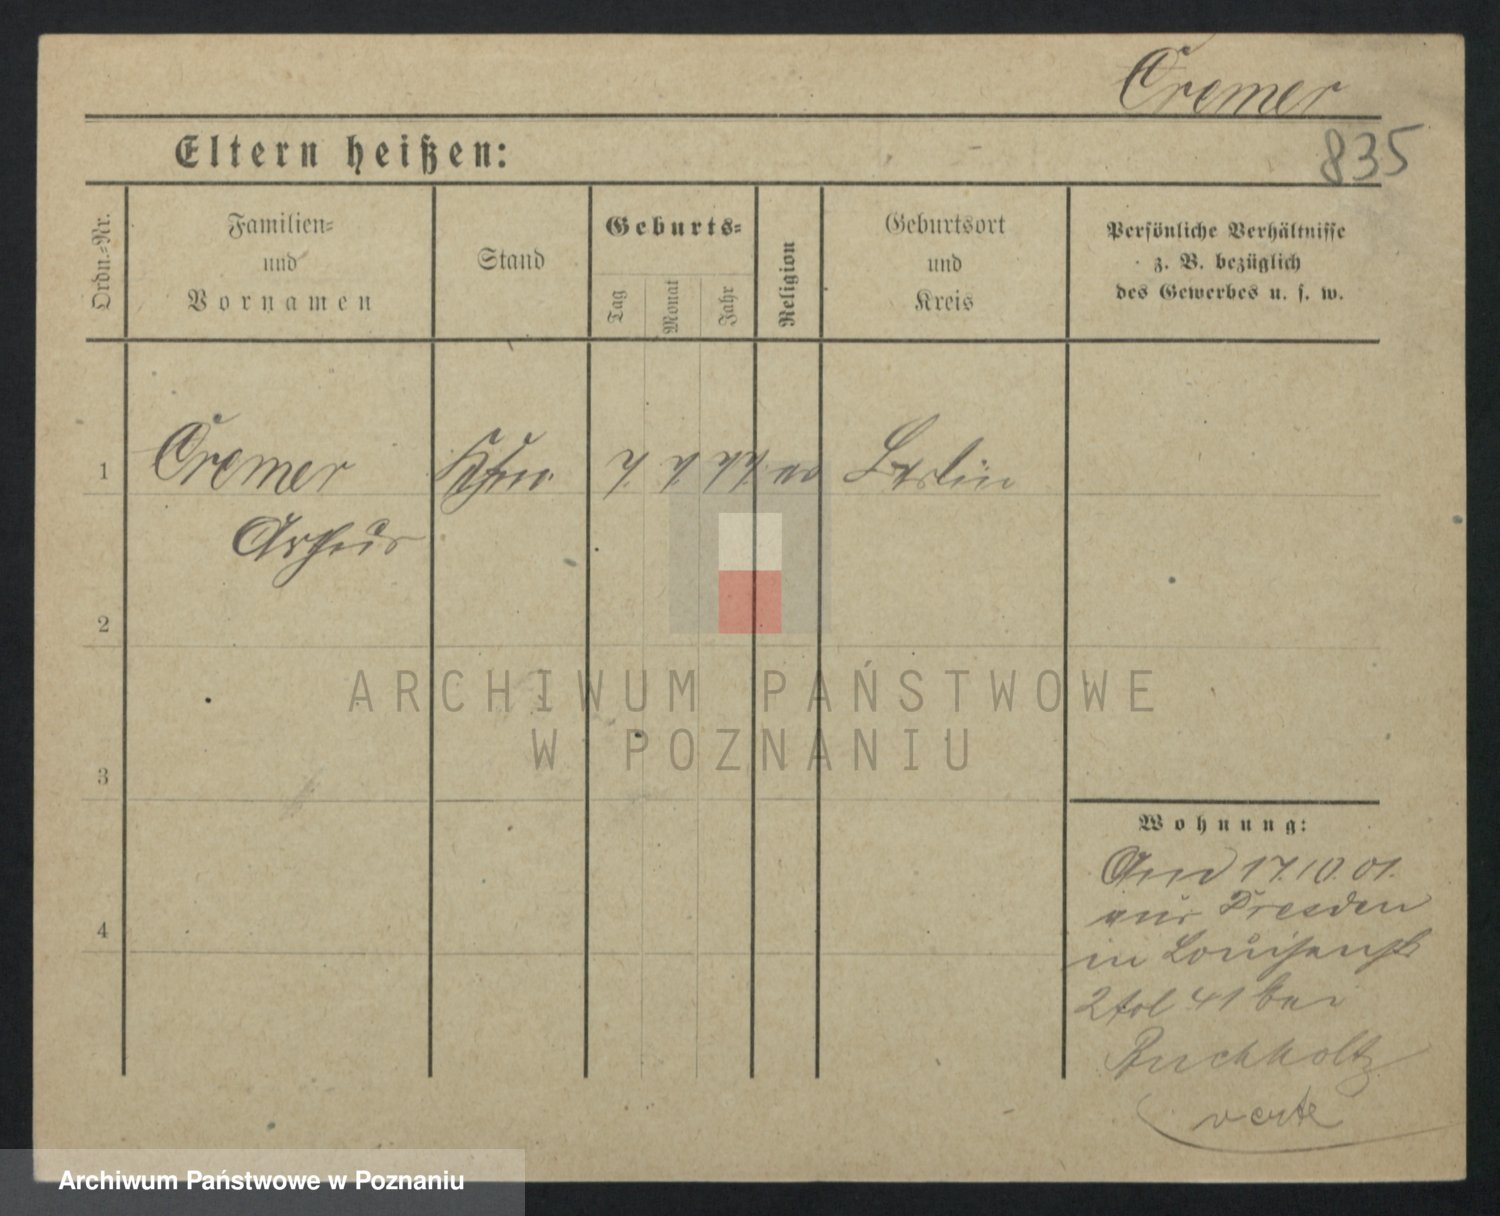 Cremer
835
Eltern heißen:
Ordn.-Nr.
Familien-
und
Vornamen
Stand
Geburts-
Tag
Monat
Jahr
Religion
Geburtsort
und
Kreis
Persönliche Verhältnisse
z. B. bezüglich
des Gewerbes u. s. w.
1
Cremer
Kfm.
7. 7. 77. ev Berlin
Arthur
2
ARCHIWUM PAŃSTWOWE
W POZNANIU
3
Wohnung:
17.10.01.
aus Dresden
in Louisenstr
4
41 bei
Buchholtz
verte
Archiwum Państwowe w Poznaniu